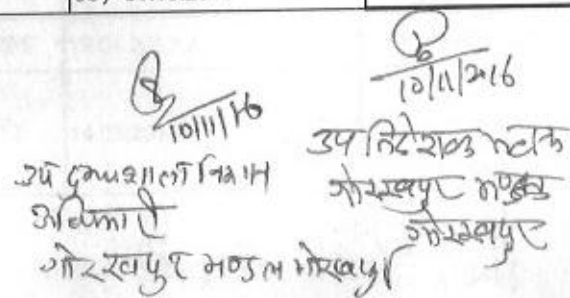 10/11/16
उप दुग्धशाला विकास
अधिकारी
गोरखपुर मण्डल गोरखपुर
10/11/2016
उप निदेशक
गोरखपुर मण्डल
गोरखपुर